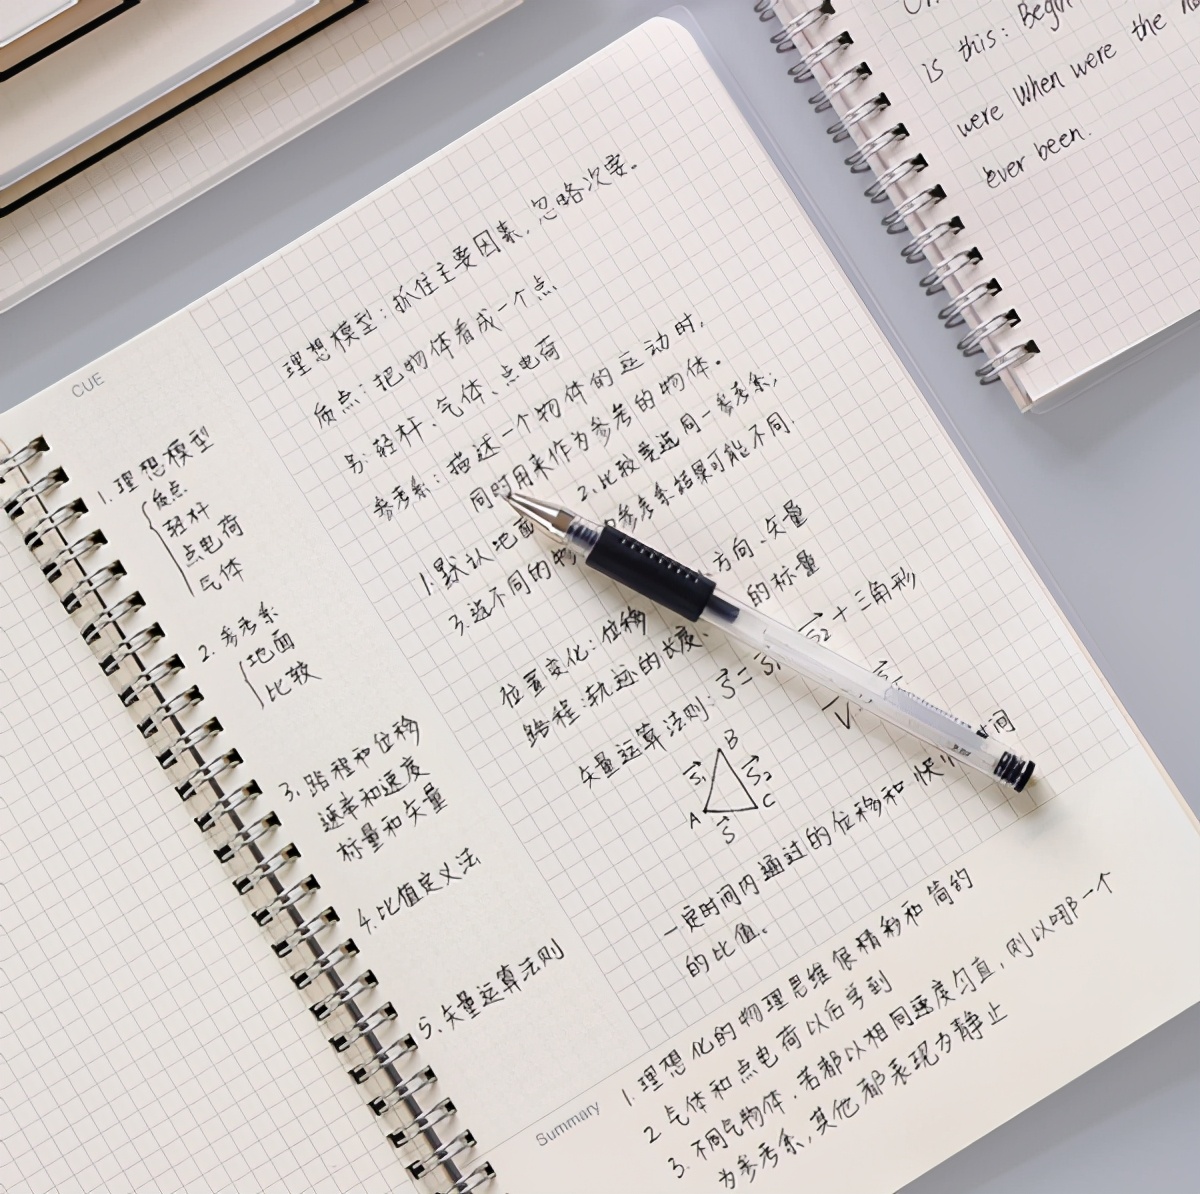 is this: Begin
were When were the
ever been.
CUE
1.理想模型
质点
轻杆
点电荷
气体
2.参考系
地面
比较
3.路程和位移
速率和速度
标量和矢量
4.比值定义法
5.矢量运算法则
理想模型:抓住主要因素,忽略次要。
质点:把物体看成一个点
轻杆、气体、点电荷
参考系:描述一个物体的运动时,
同时用来作为参考的物体。
1.默认地面
2.比较要选同一参考系;
3.选不同的物
参考系结果可能不同.
方向、矢量
位置变化:位移
的标量
路程:轨迹的长度、
矢量运算法则:S⃗=S⃗₁ S⃗₂+三角形
V
B
S⃗₁ S⃗₂
A C
S⃗
时间
一定时间内通过的位移和
的比值。
Summary
1.理想化的物理思维很精彩和简约
2.气体和点电荷以后学到
3.不同气物体.若都以相同速度匀直,则以哪一个
为参考系,其他都表现为静止